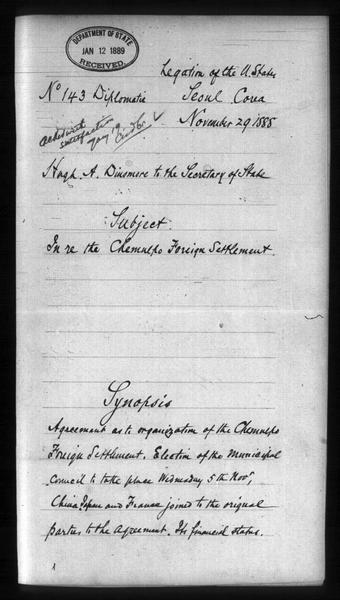 DEPARTMENT OF STATE
JAN 12 1889
RECEIVED
Legation of the U. States
No 143 Diplomatic
Seoul Corea
November 29 1888
Hugh A. Dinsmore to the Secretary of State
Subject
In re the Chemulpo Foreign Settlement.
Synopsis
Agreement as to organization of the Chemulpo
Foreign Settlement. Election of the Municipal
Council to take place Wednesday 5th
China Japan and France joined to the original
parties to the Agreement. Its financial status.
1